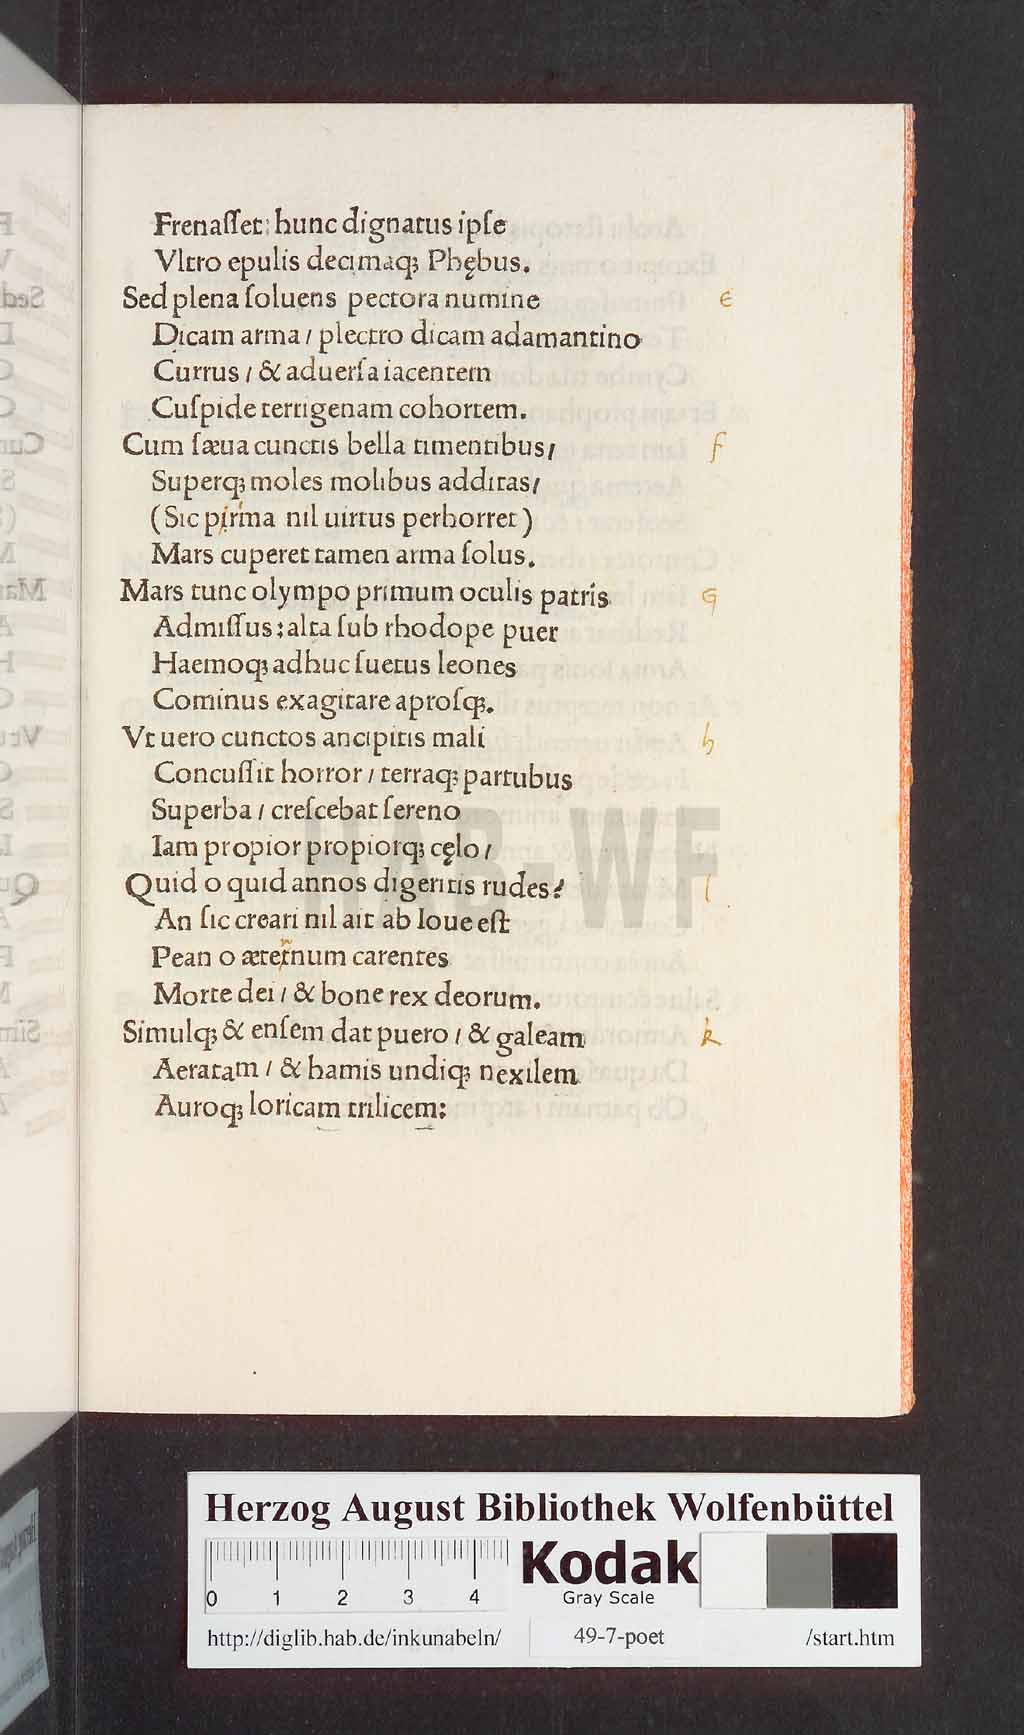 Frenaſſet: hunc dignatus ipſe
Vltro epulis decimaq; Phębus.
Sed plena ſoluens pectora numine e
Dicam arma / plectro dicam adamantino
Currus / & aduerſa iacentem
Cuſpide terrigenam cohortem.
Cum ſæua cunctis bella timentibus/ f
Superq; moles molibus additas/
(Sic pirma nil uirtus perhorret)
Mars cuperet tamen arma ſolus.
Mars tunc olympo primum oculis patris g
Admiſſus: alta ſub rhodope puer
Haemoq; adhuc ſuetus leones
Cominus exagitare aproſq;.
Vt uero cunctos ancipitis mali h
Concuſſit horror / terraq; partubus
Superba / creſcebat ſereno
Iam propior propiorq; cęlo/
Quid o quid annos digeritis rudes? i
An ſic creari nil ait ab Ioue eſt
Pean o æternum carentes
Morte dei / & bone rex deorum.
Simulq; & enſem dat puero / & galeam k
Aeratam / & hamis undiq; nexilem
Auroq; loricam trilicem:
HAB-WF
Herzog August Bibliothek Wolfenbüttel
0 1 2 3 4
Kodak
Gray Scale
http://diglib.hab.de/inkunabeln/ 49-7-poet /start.htm